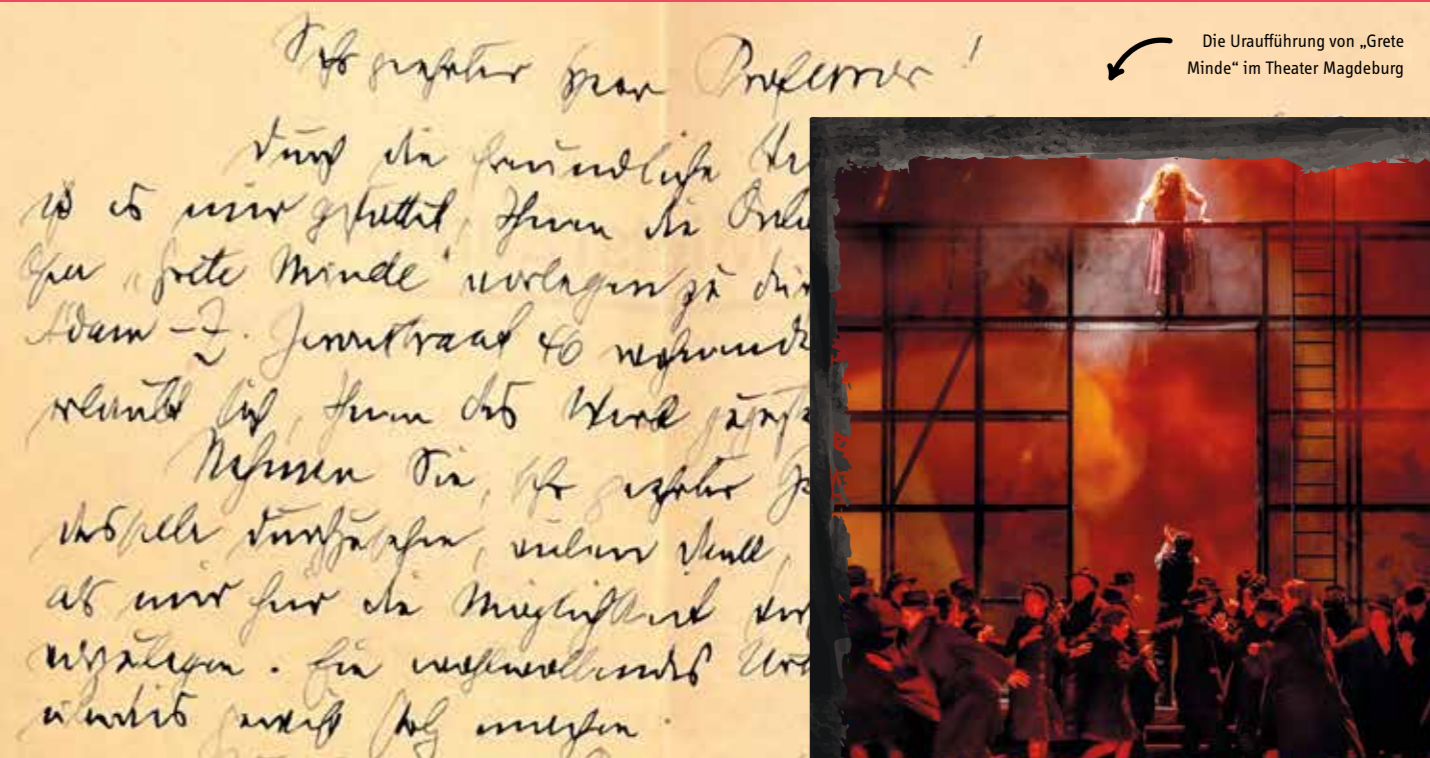 Die Uraufführung von „Grete
Minde“ im Theater Magdeburg
Sehr geehrter Herr Professor!
Durch die freundliche
ist es mir gestattet, Ihnen die
Oper „Grete Minde“ vorlegen zu
Adam
erlaubt sich, Ihnen das Werk
Nehmen Sie, sehr geehrter
dasselbe durchzusehen, vielen Dank,
als mir für die Möglichkeit
Ein wohlwollendes
gewiß stolz machen.